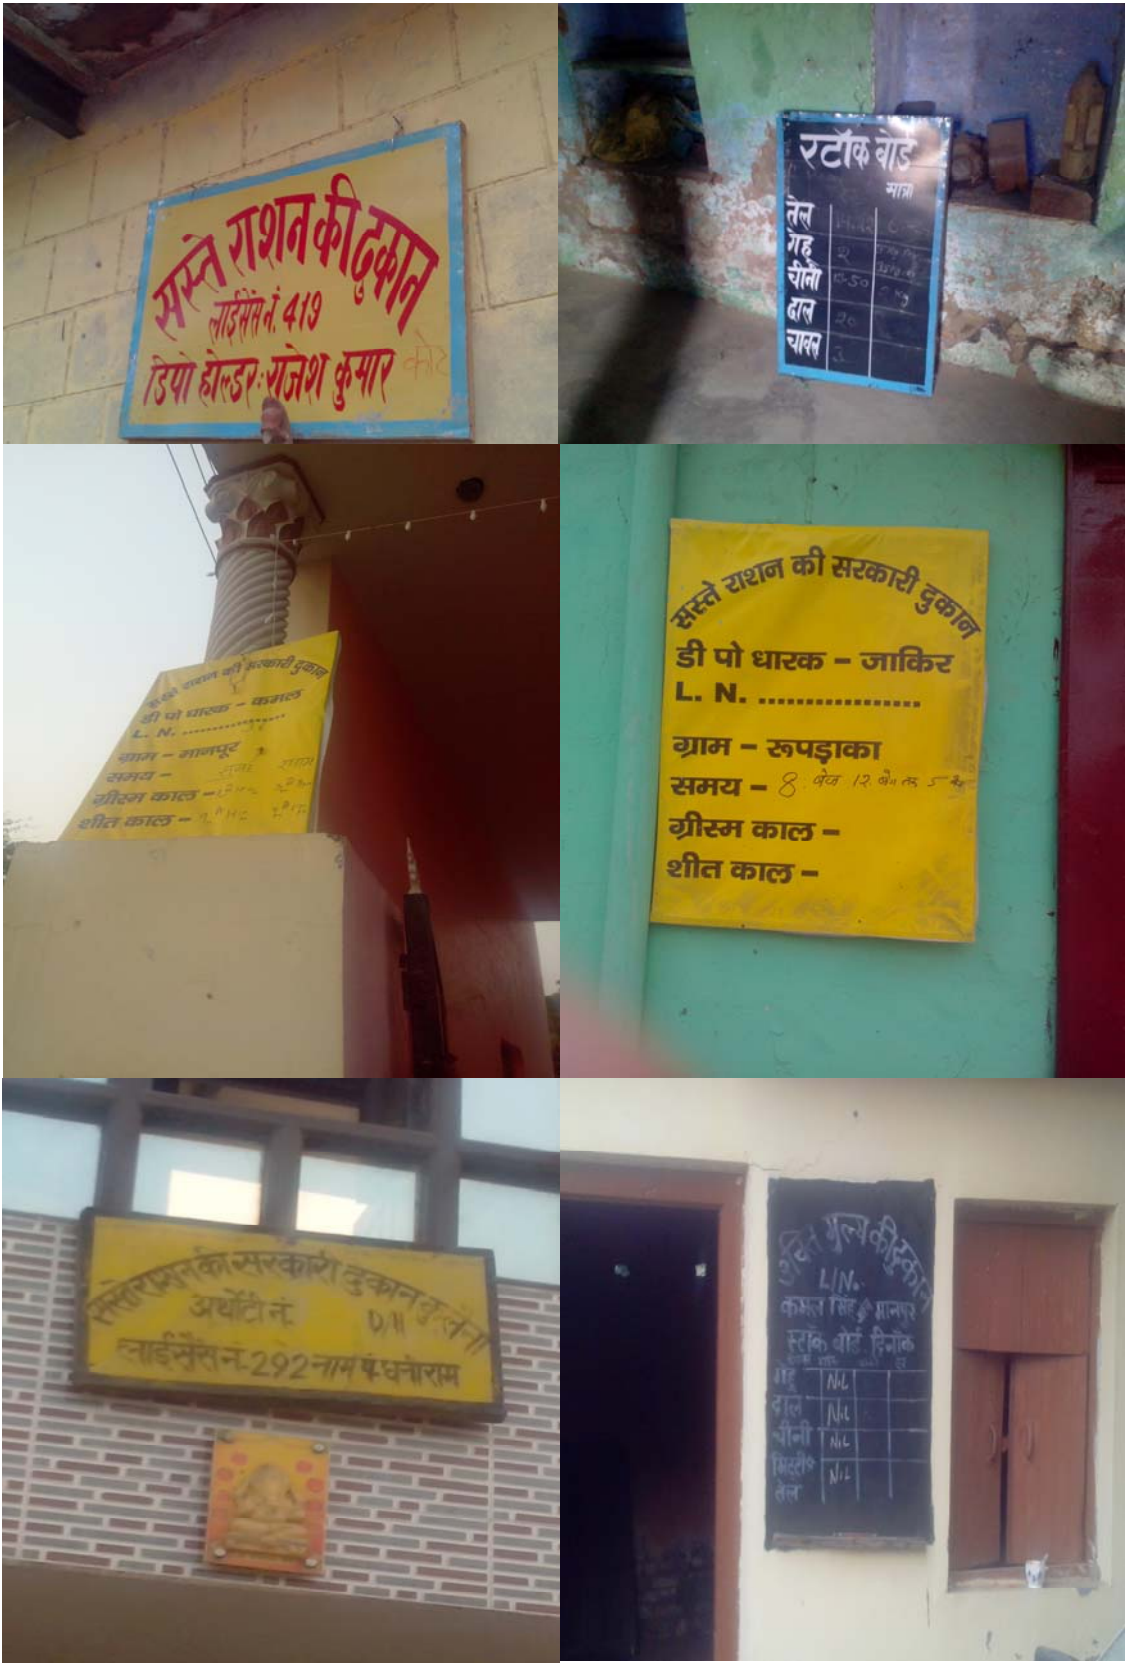 सस्ते राशन की दुकान
लाईसैंस नं. 419
डिपो होल्डर: राजेश कुमार
कोट
स्टॉक बोर्ड
मात्रा
तेल
गेहू 2
चीनी 13-50
दाल 20
चावल 3
सस्ते राशन की सरकारी दुकान
डी पो धारक - कमल
L. N. ................
ग्राम - मानपूर
समय -
ग्रीस्म काल -
शीत काल -
सस्ते राशन की सरकारी दुकान
डी पो धारक - जाकिर
L. N. .................
ग्राम - रूपड़ाका
समय - 8. बजे 12. 5
ग्रीस्म काल -
शीत काल -
सस्ते राशन की सरकारी दुकान
अथोंटी नं. D/11
लाईसैंस नं. 292 नाम पं. धनीराम
उचित मूल्य की दुकान
L/N.
कमल सिंह मानपुर
स्टॉक बोर्ड दिनॉक
गेहू NiL
दाल NiL
चीनी NiL
मिट्टी NiL
तेल